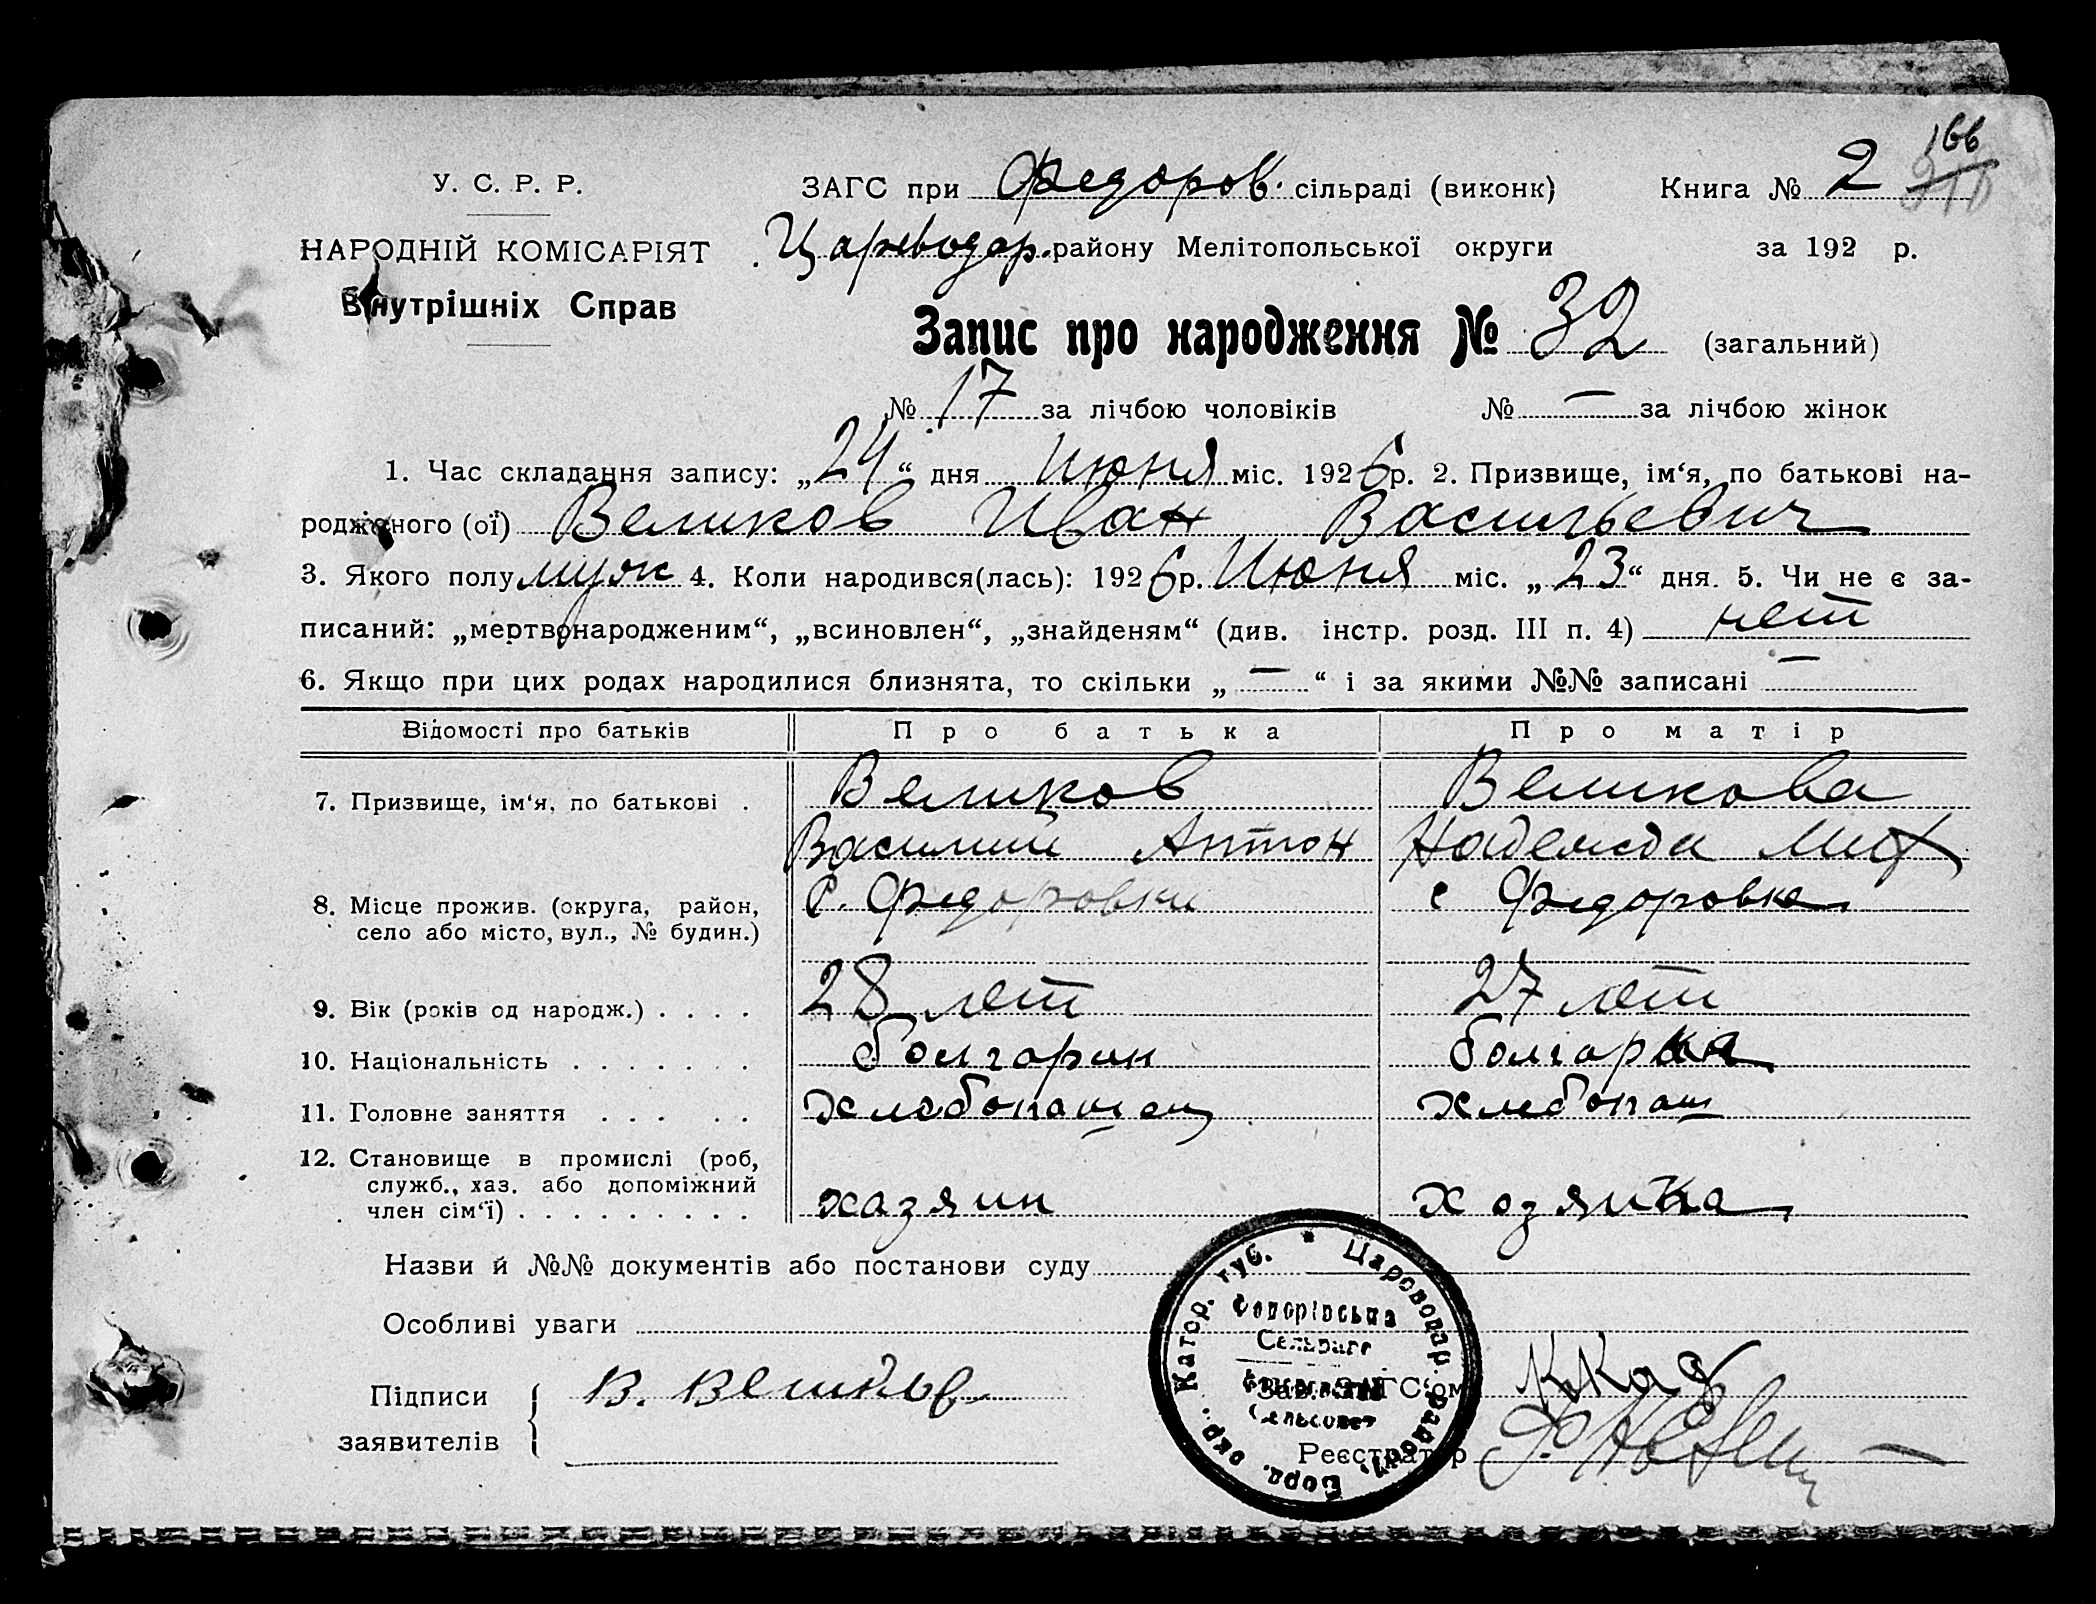 166
У. С. Р. Р.
ЗАГС при Федоров. сільраді (виконк) Книга № 2
НАРОДНІЙ КОМІСАРІЯТ
Цареводар. району Мелітопольської округи за 192 р.
Внутрішніх Справ
Запис про народження № 32 (загальний)
№ 17 за лічбою чоловіків № — за лічбою жінок
1. Час складання запису: „24“ дня Июня міс. 1926 р. 2. Призвище, ім‘я, по батькові на-
родженого (ої) Великов Иван Васильевич
3. Якого полу муж 4. Коли народився(лась): 1926 р. Июня міс. „23“ дня. 5. Чи не є за-
писаний: „мертвонародженим“, „всиновлен“, „знайденям“ (див. інстр. розд. III п. 4) нет
6. Якщо при цих родах народилися близнята, то скільки „—“ і за якими №№ записані —
Відомості про батьків Про батька Про матір
7. Призвище, ім‘я, по батькові . Великов Великова
Василий Антон Надежда Мих
8. Місце прожив. (округа, район, с. Федоровки с Федоровка
село або місто, вул., № будин.)
9. Вік (років од народж.) . . . . 28 лет 27 лет
10. Національність . . . . . . . болгарин болгарка
11. Головне заняття . . . . . хлебопашец хлебопаш
12. Становище в промислі (роб,
служб., хаз. або допоміжний
член сім‘ї) . . . . . . . . . хазяин хозяика
Назви й №№ документів або постанови суду
Особливі уваги
Підписи В. Великов Зав. ЗАГС‘ом
заявителів Реєстратор
* Царовоцар. район, Бердя. окр., Катор. губ.
Федорівська
Сельрада
Сельсовет